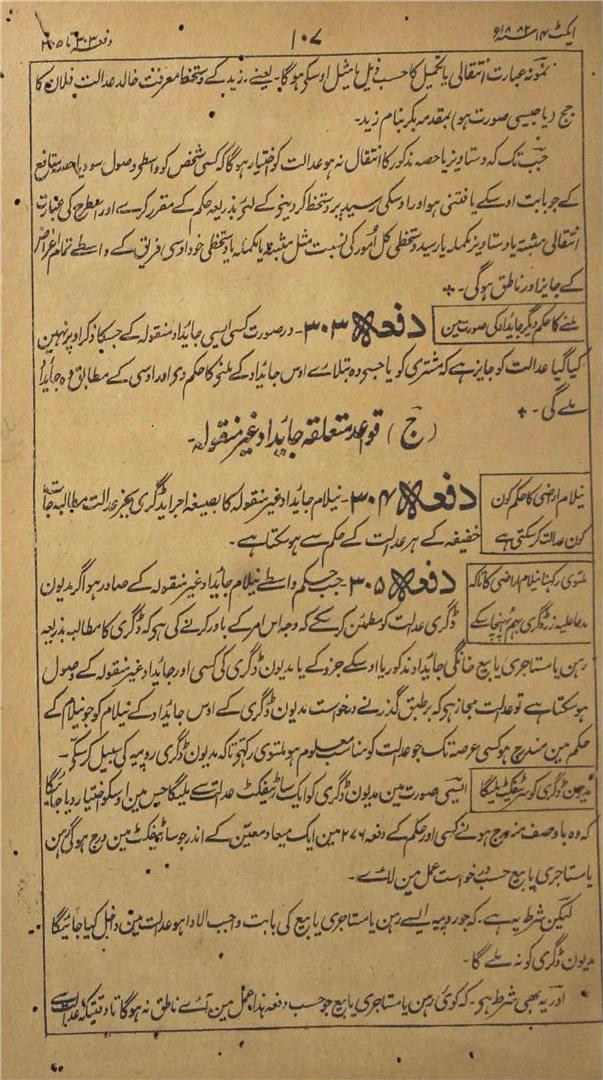 ایکٹ ۱۴ سنہ ۱۸۸۲ء
۱۰۷
دفعہ ۳۰۳ تا ۳۰۵
نمونہ عبارت انتقالی یا تکمیل کا حسب ذیل یا مثل اوسکی ہوگا۔ یعنے۔ زید کے دستخط معرفت خالد عدالت فلان کا
جج (یا جیسی صورت ہو) بمقدمہ بکر بنام زید۔
جب تک کہ دستاویز یا حصہ مذکور کا انتقال نہ ہو عدالت کو اختیار ہوگا کہ کسی شخص کو واسطے وصول سود یا حصہ منافع
کے جو بابت اوسکے یافتنی ہو اور اوسکی رسید پر دستخط کر دینی کے لئے بذریعہ حکم کے مقرر کرے اور اسطرح کی عبارت
انتقالی مثبتہ یا دستاویز مکملہ یا رسید دستخطی کل امور کی نسبت مثل مثبتہ یا مکملہ یا دستخطی خود اوسی فریق کے واسطے تمام اغراض
کے جایز اور ناطق ہوگی۔
ملنے کا حکم دیگر جائداد کی صورت مین
دفعہ ۳۰۳۔ در صورت کسی ایسی جائداد منقولہ کے جسکا ذکر اوپر نہین
کیا گیا عدالت کو جایز ہے کہ مشتری کو یا جسے وہ بتلاے اوس جائداد کے ملنے کا حکم دی اور اوسی کے مطابق وہ جائداد
ملے گی۔
(ج) قواعد متعلقہ جائداد غیر منقولہ۔
نیلام اراضی کا حکم کون
کون عدالت کرسکتی ہے
دفعہ ۳۰۴۔ نیلام جائداد غیر منقولہ کا بصیغہ اجراے ڈگری بجز عدالت مطالبہ جات
خفیفہ کے ہر عدالت کے حکم سے ہوسکتا ہے۔
ملتوی رکہنا نیلام اراضی کا تاکہ
مدعا علیہ زر ڈگری بہم پہنچا سکے
دفعہ ۳۰۵۔ جب حکم واسطے نیلام جائداد غیر منقولہ کے صادر ہو اگر مدیون
ڈگری عدالت کو مطمئن کرسکے کہ وجہ اس امر کے باور کرنے کی ہی کہ ڈگری کا مطالبہ بذریعہ
رہن یا مستاجری یا بیع خانگی جائداد مذکور یا اوسکے جزء کے یا مدیون ڈگری کی کسی اور جائداد غیر منقولہ کے وصول
ہوسکتا ہے تو عدالت مجاز ہی کہ بر طبق گذرنے درخواست مدیون ڈگری کے اوس جائداد کے نیلام کو جو نیلام کے
حکم مین مندرج ہو کسی عرصہ تک جو عدالت کو مناسب معلوم ہو ملتوی رکہے تاکہ مدیون ڈگری روپیہ کی سبیل کرسکے۔
مدیون ڈگری کو سارٹیفکٹ ملیگا
ایسی صورت مین مدیون ڈگری کو ایک سارٹیفکٹ عدالت سے ملیگا جس مین اوسکو اختیار دیا جائیگا
کہ وہ با وصف مندرج ہونے کسی اور حکم کے دفعہ ۲۷۶ مین ایک میعاد معین کے اندر جو سارٹیفکٹ مین درج ہوگی رہن
یا مستاجری یا بیع حسب درخواست عمل مین لاے۔
لیکن شرط یہ ہے۔ کہ جو روپیہ ایسے رہن یا مستاجری یا بیع کی بابت واجب الادا ہو عدالت مین داخل کیا جائیگا
مدیون ڈگری کو نہ ملے گا۔
اور یہ بھی شرط ہی۔ کہ کوئی رہن یا مستاجری یا بیع جو حسب دفعہ ہذا عمل مین آے ناطق نہ ہوگا تا وقتیکہ عدالت سے